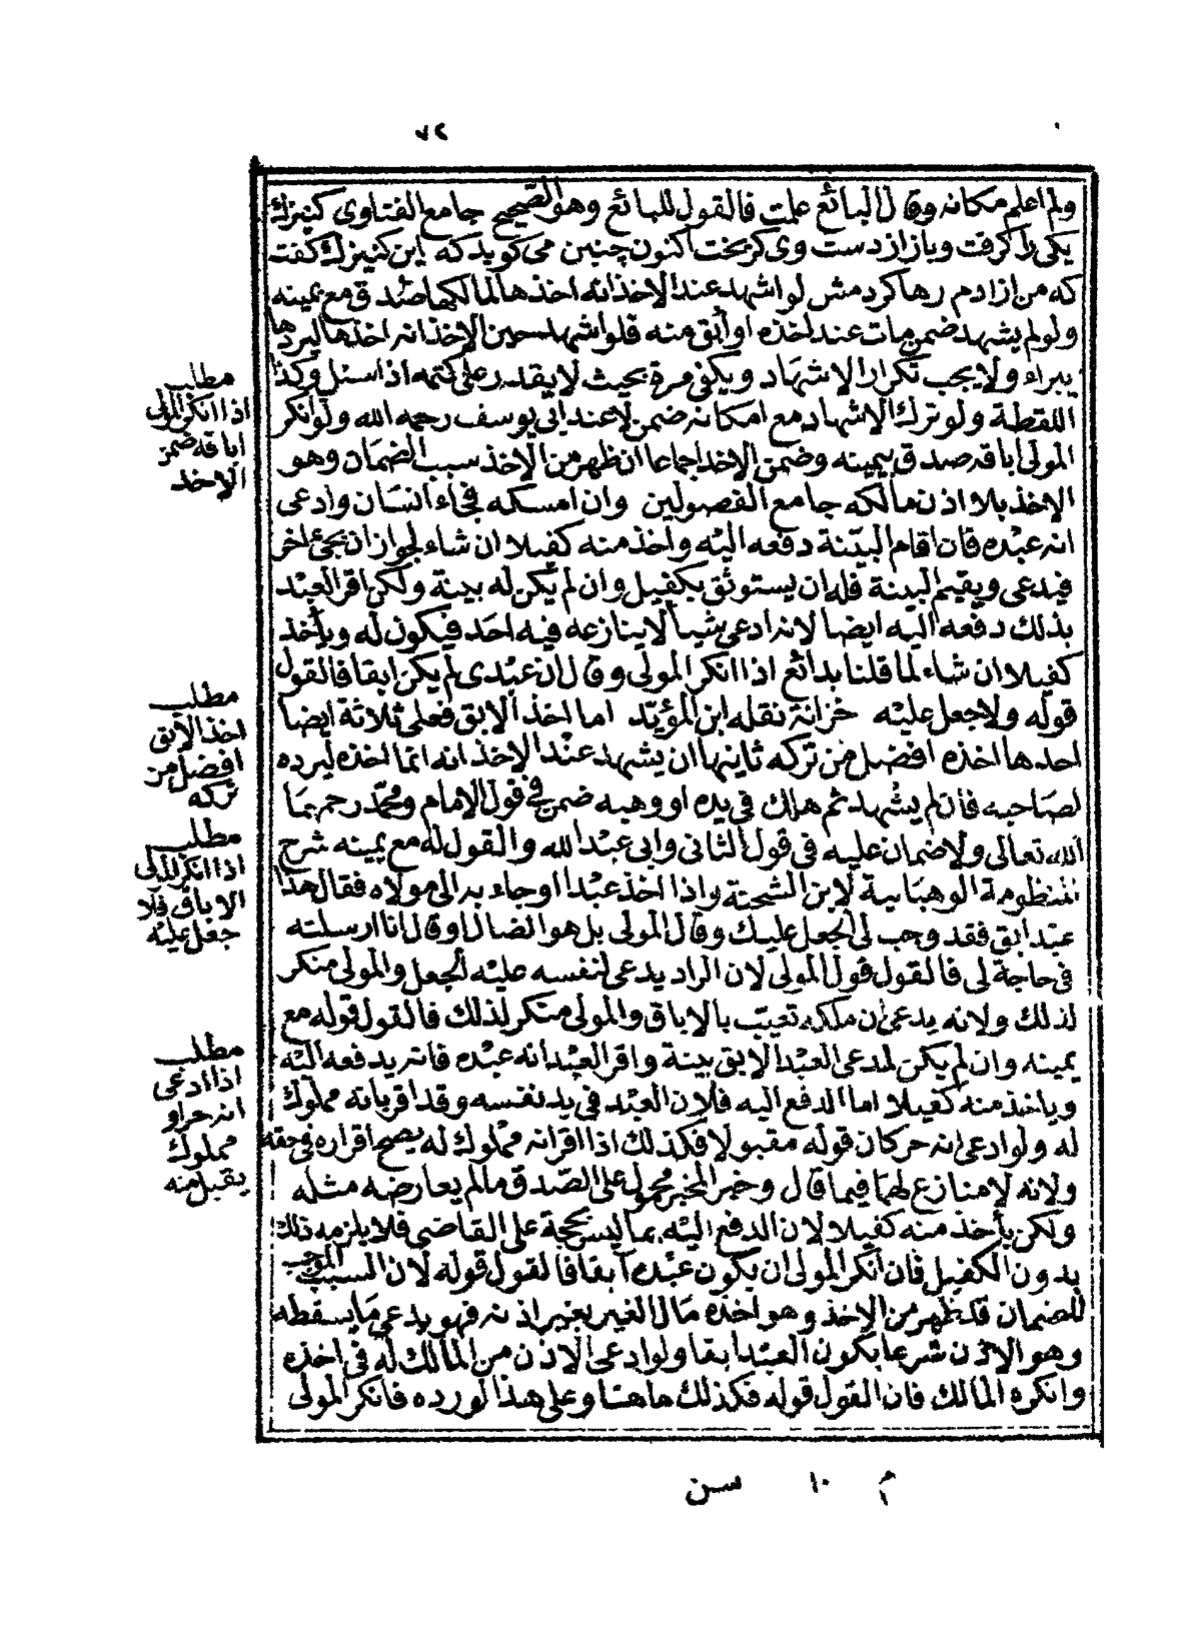 ٧٢
ولم اعلم مكانه وقال البائع علمت فالقول للبائع وهو الصحيح جامع الفتاوى كنيزك
يكى را كرفت وباز از دست وى كريخت اكنون چنين مى كويد كه اين كنيزك كفت
كه من ازادم رها كردمش لو اشهد عند الاخذ انه اخذها لمالكها صدق مع يمينه
ولو لم يشهد ضمن مات عند اخذه او أبق منه فلو اشهد حين الاخذ انه اخذها ليردها
يبراء ولا يجب تكرار الاشهاد ويكفى مرة بحيث لا يقدر على كتمه اذا سئل وكذا
اللقطة ولو ترك الاشهاد مع امكانه ضمن لا عند ابى يوسف رحمه الله ولو انكر
المولى اباقه صدق بيمينه وضمن الاخذ اجماعا ان ظهر من الاخذ سبب الضمان وهو
الاخذ بلا اذن مالكه جامع الفصولين وان امسكه فجاء انسان وادعى
انه عبده فان اقام البينة دفعه اليه واخذ منه كفيلا ان شاء لجواز ان يجئ اخر
فيدعى ويقيم البينة فله ان يستوثق بكفيل وان لم يكن له بينة ولكن اقر العبد
بذلك دفعه اليه ايضا لانه ادعى شيأ لا ينازعه فيه احد فيكون له ويأخذ
كفيلا ان شاء لما قلنا بدائع اذا انكر المولى وقال ان عبدى لم يكن ابقا فالقول
قوله ولا جعل عليه خزانة نقله ابن المؤيد اما اخذ الابق فعلى ثلاثة ايضا
احدها اخذه افضل من تركه ثانيها ان يشهد عند الاخذ انه انما اخذه ليرده
لصاحبه فان لم يشهد ثم هلك فى يده او وهبه ضمن فى قول الامام ومحمد رحمهما
الله تعالى ولا ضمان عليه فى قول الثانى وابى عبد الله والقول له مع يمينه شرح
منظومة الوهبانية لابن الشحنة واذا اخذ عبدا وجاء به الى مولاه فقال هذا
عبد ابق فقد وجب لى الجعل عليك وقال المولى بل هو الضال او قال انا ارسلته
فى حاجة لى فالقول قول المولى لان الراد يدعى لنفسه عليه الجعل والمولى منكر
لذلك ولانه يدعى ان ملكه تعيب بالاباق والمولى منكر لذلك فالقول قوله مع
يمينه وان لم يكن لمدعى العبد الابق بينة واقر العبد انه عبده فانه يدفعه اليه
وياخذ منه كفيلا اما الدفع اليه فلان العبد فى يد نفسه وقد اقر بانه مملوك
له ولو ادعى انه حر كان قوله مقبولا فكذلك اذا اقر انه مملوك له يصح اقراره فى حقه
ولانه لا منازع لهما فيما قال وخبر المخبر محمول على الصدق ما لم يعارضه مثله
ولكن يأخذ منه كفيلا لان الدفع اليه بما ليس بحجة على القاضى فلا يلزمه ذلك
بدون الكفيل فان انكر المولى ان يكون عبده آبقا فالقول قوله لان السبب الموجب
للضمان قد ظهر من الاخذ وهو اخذه مال الغير بغير اذنه فهو يدعى ما يسقطه
وهو الاذن شرعا بكون العبد ابقا ولو ادعى الاذن من المالك له فى اخذه
وانكره المالك فان القول قوله فكذلك هاهنا وعلى هذا لو رده فانكر المولى
مطلب
اذا انكر المولى
اباقه ضمن
الاخذ
مطلب
اخذ الابق
افضل من
تركه
مطلب
اذا انكر المولى
الاباق فلا
جعل عليه
مطلب
اذا ادعى
انه حر او
مملوك
يقبل منه
م ١٠ سن